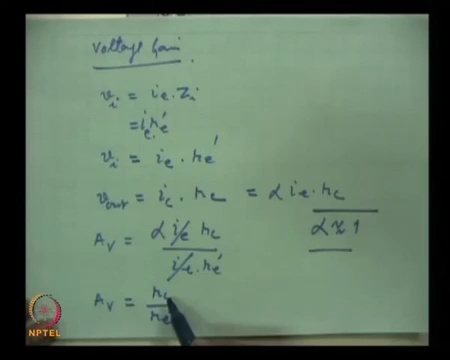 Voltage Gain
v_i = i_e . Z_i
= i_e r_e'
v_i = i_e . r_e'
v_out = i_c . r_c = α i_e . r_c
A_v = α i_e r_c / i_e . r_e' α ≈ 1
A_v = r_c / r_e
NPTEL